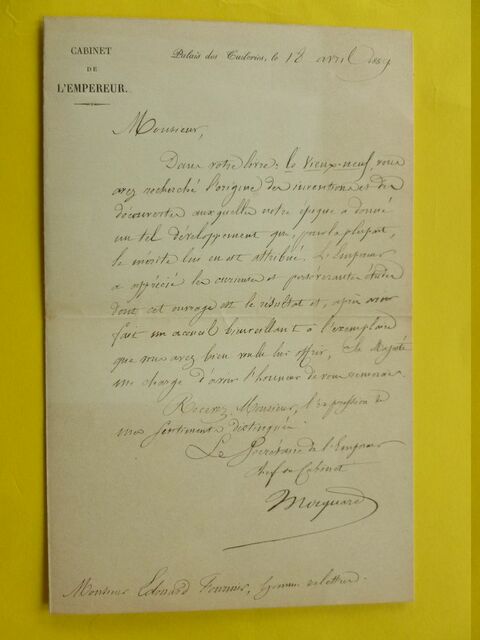 CABINET
DE
L'EMPEREUR.
Palais des Tuileries, le 18 avril 1859
Monsieur,
Dans votre livre : le Vieux-neuf, vous
avez recherché l'origine des inventions et des
découvertes auxquelles notre époque a donné
un tel développement que, pour la plupart,
le mérite lui en est attribué. L'Empereur
a apprécié les curieuses et persévérantes études
dont cet ouvrage est le résultat et, après avoir
fait un accueil bienveillant à l'exemplaire
que vous avez bien voulu lui offrir, Sa Majesté
me charge d'avoir l'honneur de vous remercier.
Recevez, Monsieur, l'expression de
mes sentiments distingués.
Le Secrétaire de l'Empereur
Chef du Cabinet
Mocquard
Monsieur Edouard Fournier, homme de lettres.